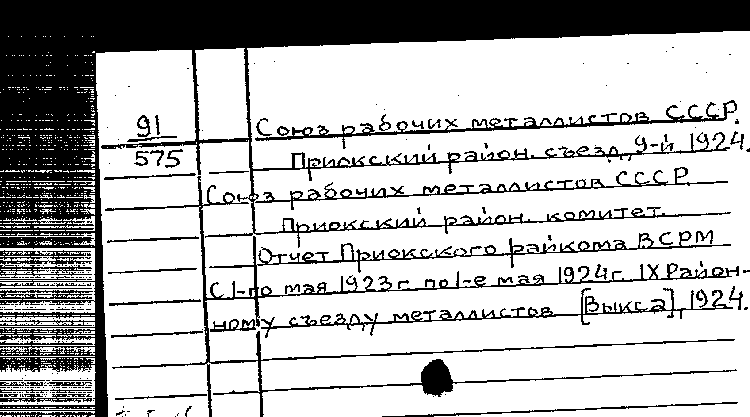 91
575
Союз рабочих металлистов СССР.
Приокский район. съезд, 9-й 1924.
Союз рабочих металлистов СССР.
Приокский район. комитет.
Отчет Приокского райкома ВСРМ
С 1-го мая 1923г. по 1-е мая 1924г. IX Район-
ному съезду металлистов [Выкса], 1924.